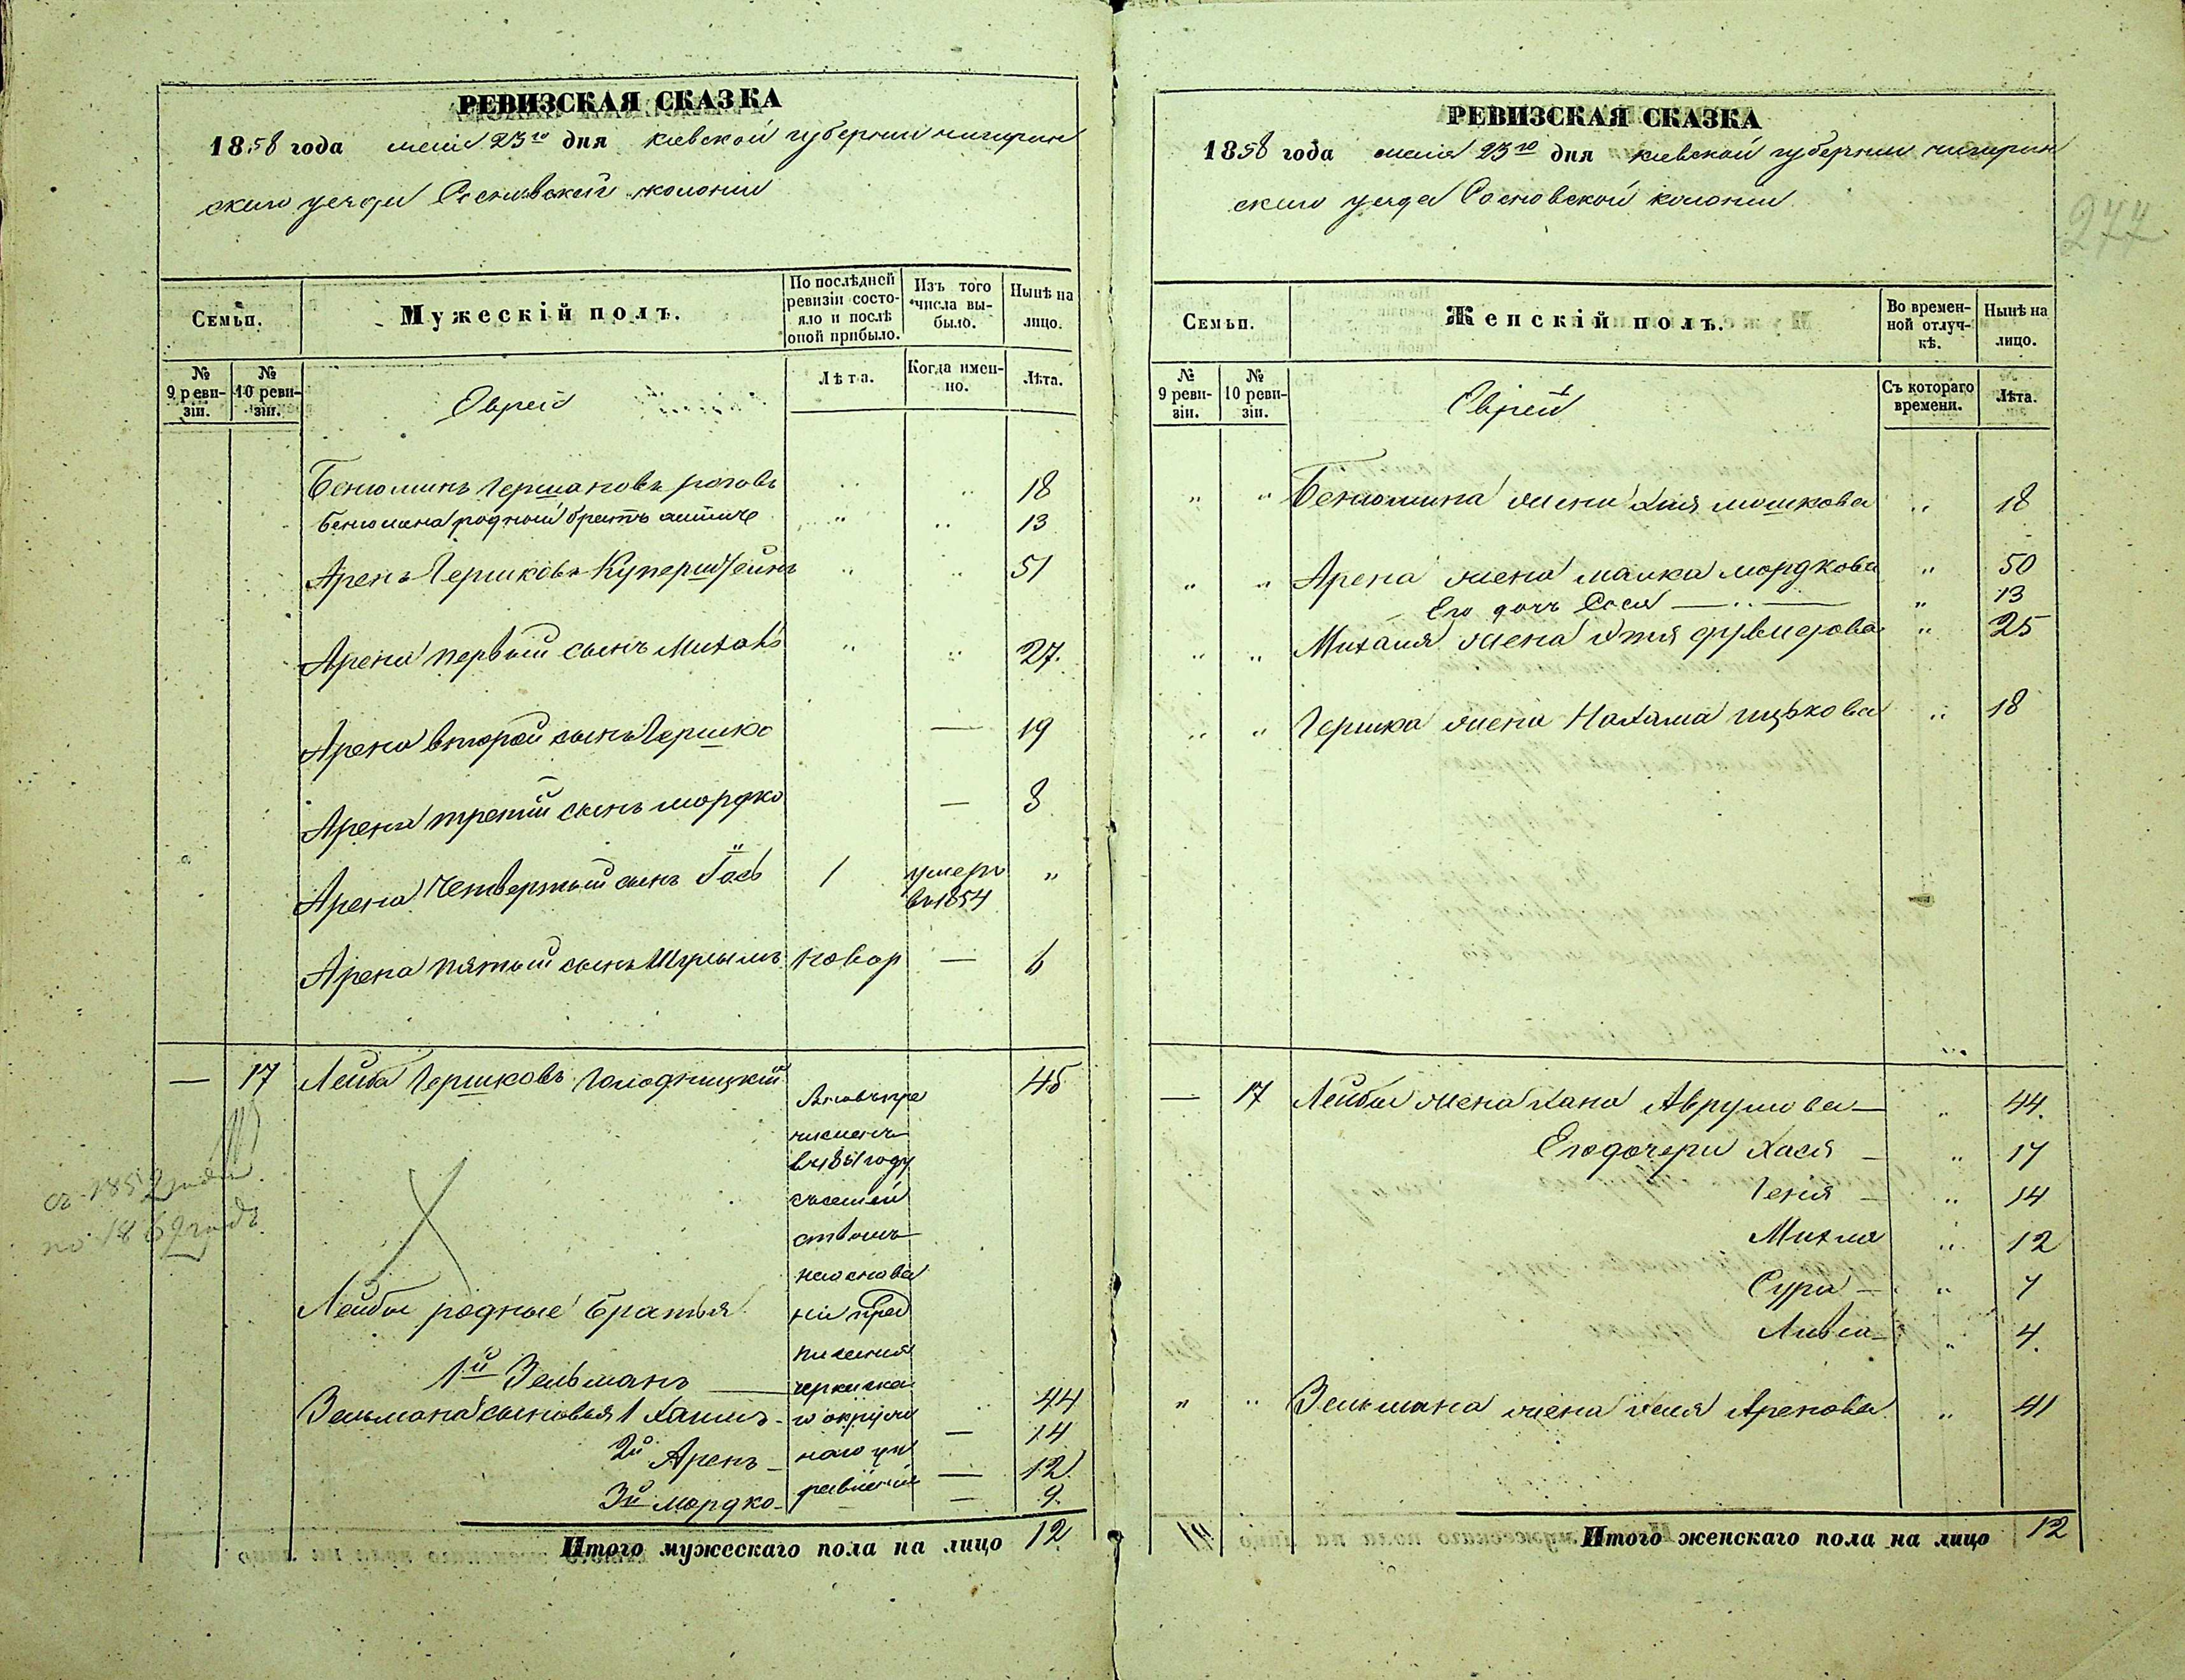 РЕВИЗСКАЯ СКАЗКА
1858 года мая 23го дня киевской губернии чигирин
скаго уезда Сосновской колонии
Семьи.
Мужескій полъ.
По послѣдней ревизіи состояло и послѣ оной прибыло.
Изъ того числа выбыло.
Нынѣ на лицо.
№ 9 ревизіи.
№ 10 ревизіи.
Евреи
Лѣта.
Когда именно.
Лѣта.
Бенюминъ Гершковъ 18
Бенюмина родной братъ 13
Аренъ Гершковъ Куперштейнъ 51
Арена первый сынъ Михель 27.
Арена второй сынъ Гершко — 19
Арена третий сынъ мордко — 8
Арена четвертый сынъ 1 умеръ в 1854 "
Арена пятый сынъ Шулимъ новор — 6
— 17 Лейба Гершковъ Голодницкий 45
вновь при
численъ
в 1851 году
съ семей
ствомъ
на основа
нии пред
писания
черкаска
го окруж
наго уп
равления
съ 1852 года
по 1862 годъ
Лейбы родные братья
1й Зельманъ — 44
Зельмана сыновья 1 Хаимъ — 14
2й Аренъ — 12.
3й мордко — 9.
Итого мужескаго пола на лицо 12
РЕВИЗСКАЯ СКАЗКА
277
1858 года мая 23го дня киевской губернии чигирин
скаго уезда Сосновской колонии
Семьи.
Женскій полъ.
Во временной отлучкѣ.
Нынѣ на лицо.
№ 9 ревизіи.
№ 10 ревизіи.
Евреи
Съ котораго времени.
Лѣта.
" " Бенюмина жена Хая мошкова " 18
" " Арена жена малка мордкова " 50
Его дочь Сося — " — " 13
" " Михеля жена " 25
" " Гершка жена Нахама ицькова " 18
— 17 Лейбы жена Хана Аврумова — " 44.
Его дочери Хася — " 17
Геня — " 14
Михля " 12
Сура — " 7
Ливша — " 4.
" " Зельмана жена Аренова " 41
Итого женскаго пола на лицо 12